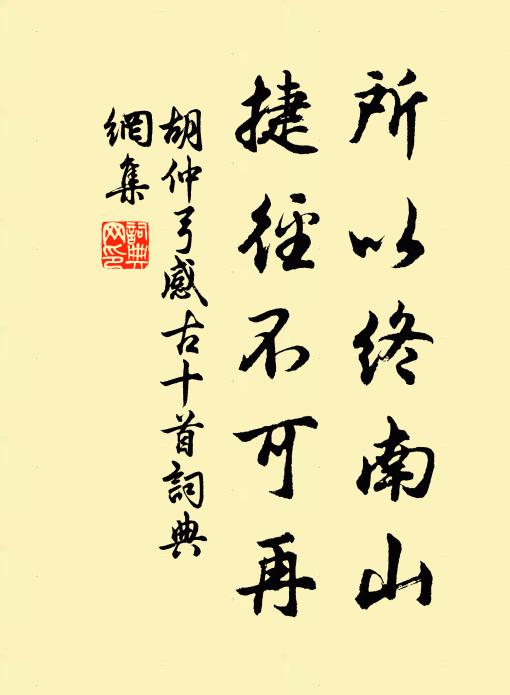 所以終南山
捷徑不可再
胡仲弓感古十首詞典
網集
詞典
网印